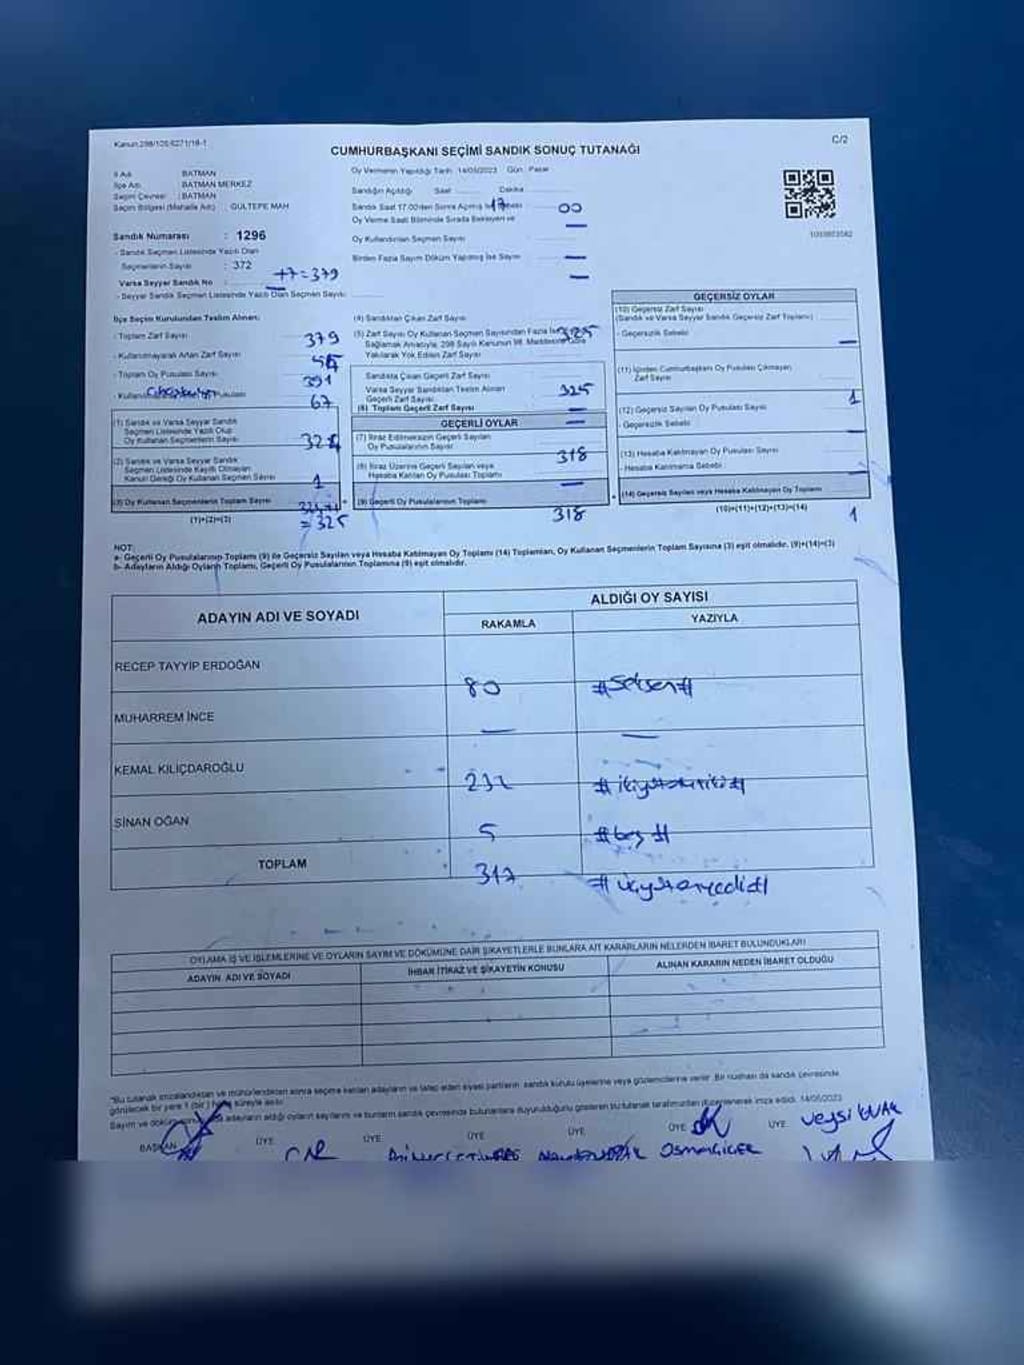 Kanun:298/105;6271/18-1
C/2
CUMHURBAŞKANI SEÇİMİ SANDIK SONUÇ TUTANAĞI
İl Adı : BATMAN
İlçe Adı : BATMAN MERKEZ
Seçim Çevresi : BATMAN
Seçim Bölgesi (Mahalle Adı) : GÜLTEPE MAH
Sandık Numarası : 1296
- Sandık Seçmen Listesinde Yazılı Olan
Seçmenlerin Sayısı : 372
+7=379
Varsa Seyyar Sandık No :
- Seyyar Sandık Seçmen Listesinde Yazılı Olan Seçmen Sayısı:
Oy Vermenin Yapıldığı Tarih: 14/05/2023 Gün: Pazar
Sandığın Açıldığı Saat Dakika
Sandık Saat 17.00'den Sonra Açılmış İse 17 00
Oy Verme Saati Bitiminde Sırada Bekleyen ve
Oy Kullandırılan Seçmen Sayısı
Birden Fazla Sayım Döküm Yapılmış İse Sayısı
İlçe Seçim Kurulundan Teslim Alınan:
- Toplam Zarf Sayısı 379
- Kullanılmayarak Artan Zarf Sayısı 54
- Toplam Oy Pusulası Sayısı 391
Pusulası 67
(1) Sandık ve Varsa Seyyar Sandık
Seçmen Listesinde Yazılı Olup
Oy Kullanan Seçmenlerin Sayısı 324
(2) Sandık ve Varsa Seyyar Sandık
Seçmen Listesinde Kayıtlı Olmayan
Kanun Gereği Oy Kullanan Seçmen Sayısı 1
(3) Oy Kullanan Seçmenlerin Toplam Sayısı 324+1
(1)+(2)=(3) =325
(4) Sandıktan Çıkan Zarf Sayısı 325
(5) Zarf Sayısı Oy Kullanan Seçmen Sayısından Fazla İse
Sağlamak Amacıyla, 298 Sayılı Kanunun 98. Maddesine Göre
Yakılarak Yok Edilen Zarf Sayısı
Sandıkta Çıkan Geçerli Zarf Sayısı 325
Varsa Seyyar Sandıktan Teslim Alınan
Geçerli Zarf Sayısı
(6) Toplam Geçerli Zarf Sayısı
GEÇERLİ OYLAR
(7) İtiraz Edilmeksizin Geçerli Sayılan
Oy Pusulalarının Sayısı 318
(8) İtiraz Üzerine Geçerli Sayılan veya
Hesaba Katılan Oy Pusulası Toplamı
(9) Geçerli Oy Pusulalarının Toplamı 318
GEÇERSİZ OYLAR
(10) Geçersiz Zarf Sayısı
(Sandık ve Varsa Seyyar Sandık Geçersiz Zarf Toplamı)
- Geçersizlik Sebebi
(11) İçinden Cumhurbaşkanı Oy Pusulası Çıkmayan
Zarf Sayısı 1
(12) Geçersiz Sayılan Oy Pusulası Sayısı
- Geçersizlik Sebebi
(13) Hesaba Katılmayan Oy Pusulası Sayısı
- Hesaba Katılmama Sebebi
(14) Geçersiz Sayılan veya Hesaba Katılmayan Oy Toplamı
(10)+(11)+(12)+(13)=(14) 1
NOT:
a- Geçerli Oy Pusulalarının Toplamı (9) ile Geçersiz Sayılan veya Hesaba Katılmayan Oy Toplamı (14) Toplamları, Oy Kullanan Seçmenlerin Toplam Sayısına (3) eşit olmalıdır. (9)+(14)=(3)
b- Adayların Aldığı Oyların Toplamı, Geçerli Oy Pusulalarının Toplamına (9) eşit olmalıdır.
ADAYIN ADI VE SOYADI
ALDIĞI OY SAYISI
RAKAMLA YAZIYLA
RECEP TAYYİP ERDOĞAN 80 #Seksen#
MUHARREM İNCE — —
KEMAL KILIÇDAROĞLU 232 #ikiyüzotuziki#
SİNAN OĞAN 5 #beş#
TOPLAM 317 #üçyüzonyedi#
OYLAMA İŞ VE İŞLEMLERİNE VE OYLARIN SAYIM VE DÖKÜMÜNE DAİR ŞİKAYETLERLE BUNLARA AİT KARARLARIN NELERDEN İBARET BULUNDUKLARI
ADAYIN ADI VE SOYADI İHBAR İTİRAZ VE ŞİKAYETİN KONUSU ALINAN KARARIN NEDEN İBARET OLDUĞU
"Bu tutanak imzalandıktan ve mühürlendikten sonra seçime katılan adayların ve talep eden siyasi partilerin sandık kurulu üyelerine veya gözlemcilerine verilir. Bir nüshası da sandık çevresinde
görülecek bir yere 1 (bir) süreyle asılır.
Sayım ve döküm adayların aldığı oyların sayılarını ve bunların sandık çevresinde bulunanlara duyurulduğunu gösteren bu tutanak tarafımızdan düzenlenerek imza edildi. 14/05/2023
BAŞKAN ÜYE ÜYE ÜYE ÜYE ÜYE ÜYE
Veysi